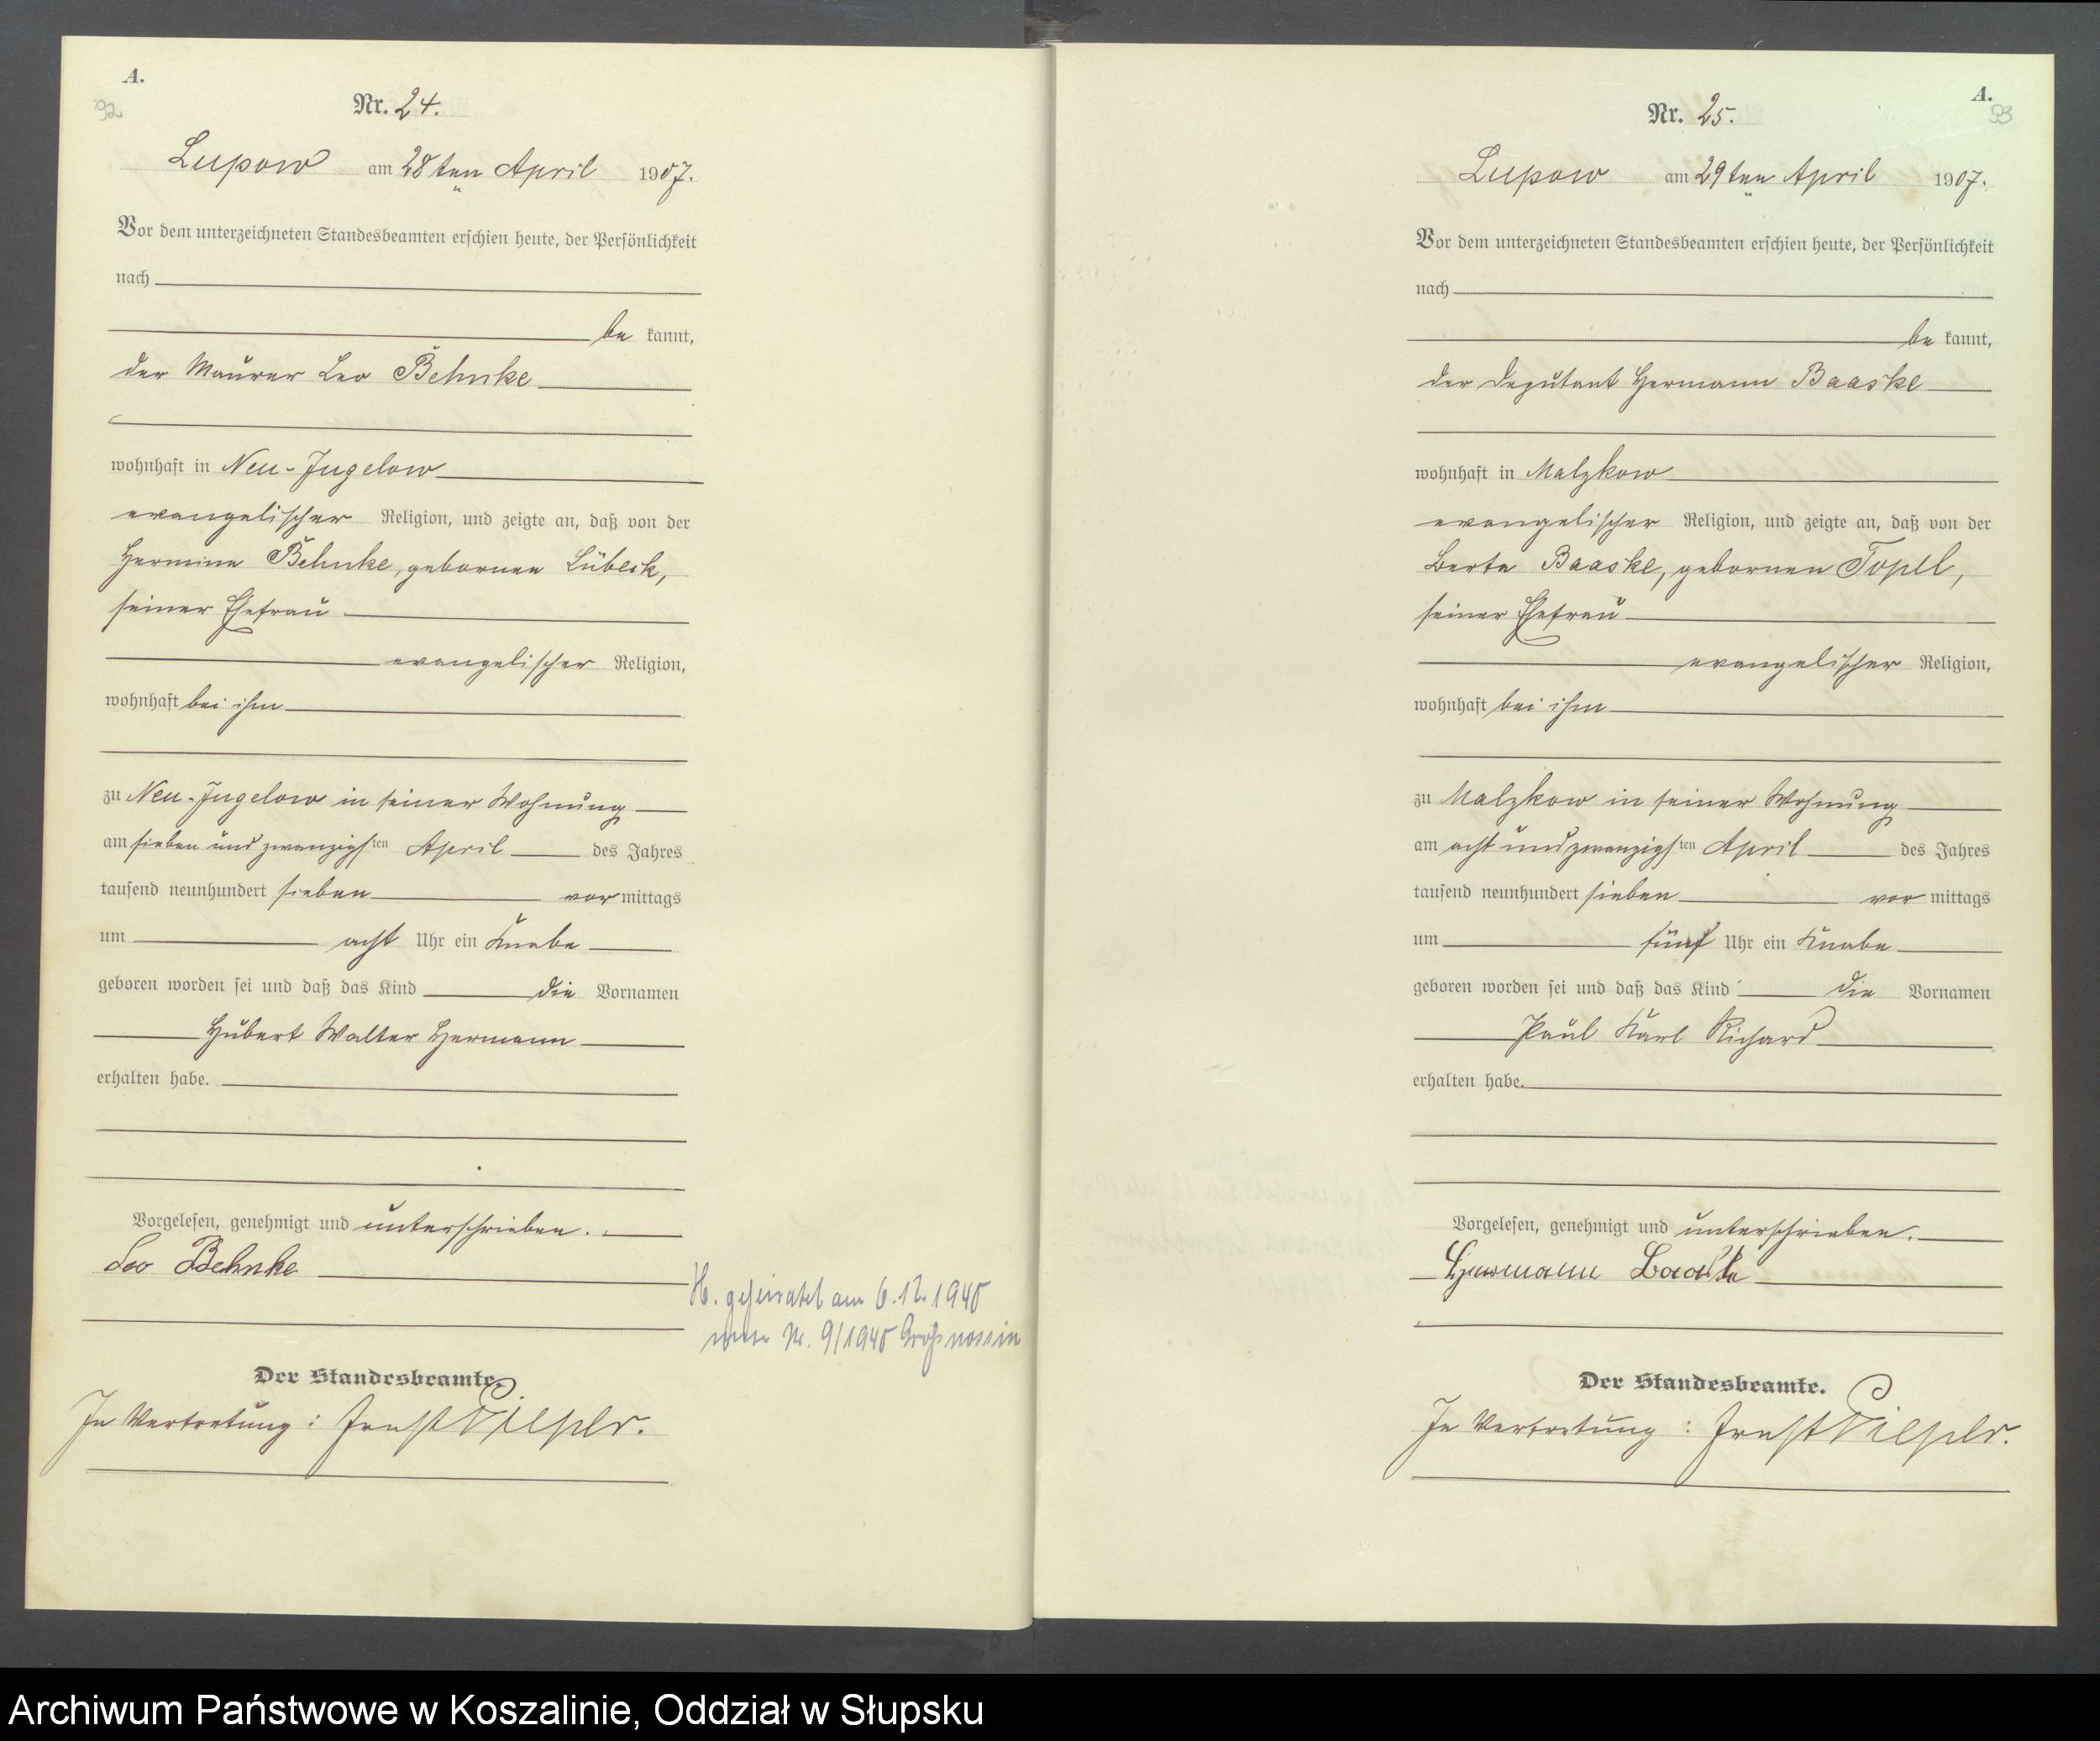 A.
92
Nr. 24.
Lupow am 28ten April 1907.
Vor dem unterzeichneten Standesbeamten erschien heute, der Persönlichkeit
nach
be kannt,
der Maurer Leo Behnke
wohnhaft in Neu-Jugelow
evangelischer Religion, und zeigte an, daß von der
Hermine Behnke, geborenen Lübeck,
seiner Ehefrau
evangelischer Religion,
wohnhaft bei ihm
zu Neu-Jugelow in seiner Wohnung
am sieben und zwanzigsten April des Jahres
tausend neunhundert sieben vor mittags
um acht Uhr ein Knabe
geboren worden sei und daß das Kind die Vornamen
Hubert Walter Hermann
erhalten habe.
Vorgelesen, genehmigt und unterschrieben.
Leo Behnke
H. geheiratet am 6.12.1940
Nr. 9/1940 Großnossin
Der Standesbeamte.
In Vertretung: Ernst
A.
93
Nr. 25.
Lupow am 29ten April 1907.
Vor dem unterzeichneten Standesbeamten erschien heute, der Persönlichkeit
nach
be kannt,
der Deputant Hermann Baaske
wohnhaft in Malzkow
evangelischer Religion, und zeigte an, daß von der
Berta Baaske, geborenen Topel,
seiner Ehefrau
evangelischer Religion,
wohnhaft bei ihm
zu Malzkow in seiner Wohnung
am acht und zwanzigsten April des Jahres
tausend neunhundert sieben vor mittags
um fünf Uhr ein Knabe
geboren worden sei und daß das Kind die Vornamen
Paul Karl Richard
erhalten habe.
Vorgelesen, genehmigt und unterschrieben.
Hermann Baaske
Der Standesbeamte.
In Vertretung: Ernst
Archiwum Państwowe w Koszalinie, Oddział w Słupsku